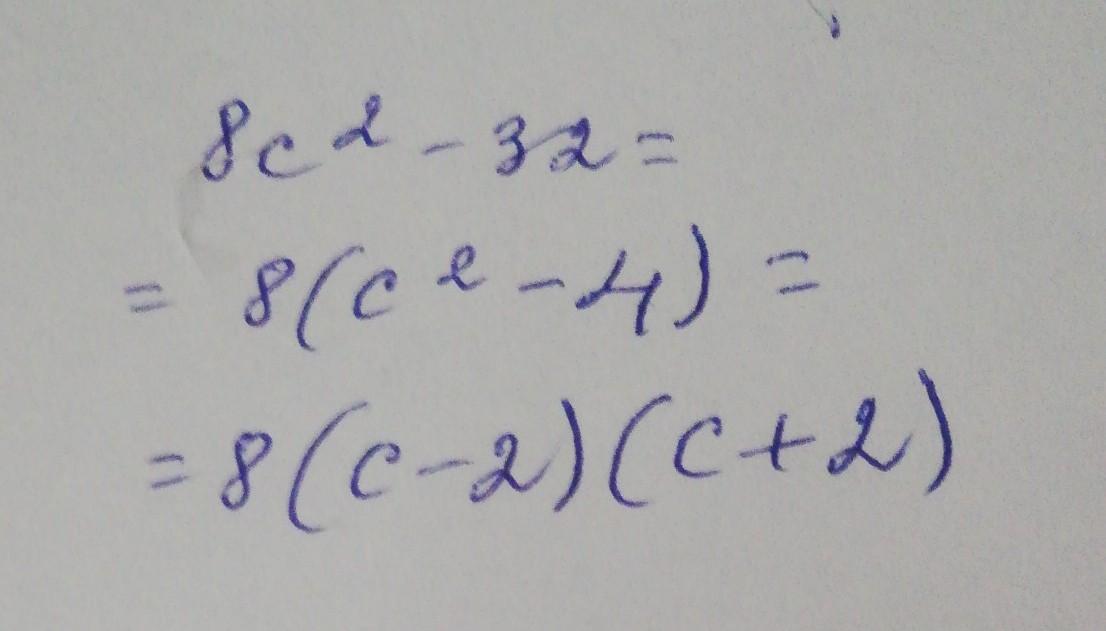 8c² - 32 =
= 8(c² - 4) =
= 8(c - 2)(c + 2)